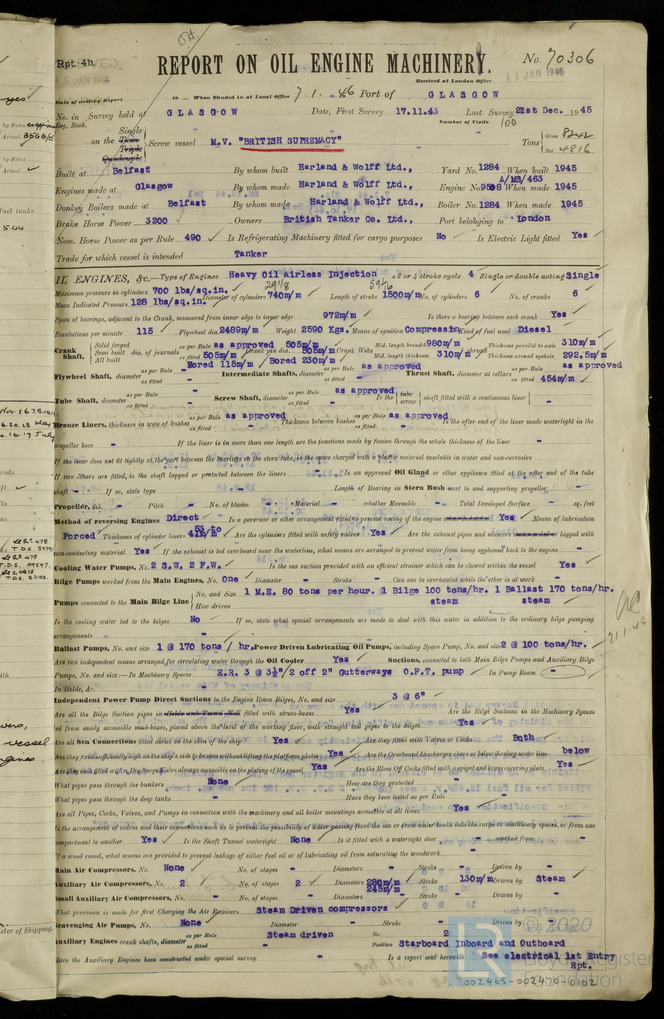 Rpt. 4b.
REPORT ON OIL ENGINE MACHINERY.
No. 70306
Received at London Office
11 JAN 1946
Date of writing Report 19 When handed in at Local Office 7.1.46 Port of GLASGOW
No. in Survey held at GLASGOW Date, First Survey 17.11.43 Last Survey 21st Dec. 1945
Reg. Book. Number of Visits 100
Single
on the Twin Screw vessel M.V. "BRITISH SUPREMACY" Tons Gross 8242
Triple
Quadruple Net 4816
Built at Belfast By whom built Harland & Wolff Ltd., Yard No. 1284 When built 1945
Engines made at Glasgow By whom made Harland & Wolff Ltd., Engine No. A/M3/463 When made 1945
Donkey Boilers made at Belfast By whom made Harland & Wolff Ltd., Boiler No. 1284 When made 1945
Brake Horse Power 3200 Owners British Tanker Co. Ltd., Port belonging to London
Nom. Horse Power as per Rule 490 Is Refrigerating Machinery fitted for cargo purposes No Is Electric Light fitted Yes
Trade for which vessel is intended Tanker
IL ENGINES, &c.—Type of Engines Heavy Oil Airless Injection 2 or 4 stroke cycle 4 Single or double acting Single
Maximum pressure in cylinders 700 lbs/sq.in. Diameter of cylinders 740m/m Length of stroke 1500m/m No. of cylinders 6 No. of cranks 6
Mean Indicated Pressure 128 lbs/sq.in.
Span of bearings, adjacent to the Crank, measured from inner edge to inner edge 972m/m Is there a bearing between each crank Yes
Revolutions per minute 115 Flywheel dia. 2489m/m Weight 2590 Kgs. Means of ignition Compression Kind of fuel used Diesel
Crank Shaft, Solid forged Semi built All built dia. of journals as per Rule as approved as fitted 505m/m Bored 115m/m Crank pin dia. 505m/m Bored 230m/m Crank Webs Mid. length breadth 980m/m Mid. length thickness 310m/m Thickness parallel to axis 310m/m Thickness around eyehole 292.5m/m
Flywheel Shaft, diameter as per Rule - as fitted - Intermediate Shafts, diameter as per Rule as approved as fitted Thrust Shaft, diameter at collars as per Rule as approved as fitted 454m/m
Tube Shaft, diameter as per Rule - as fitted - Screw Shaft, diameter as per Rule as approved as fitted Is the tube screw shaft fitted with a continuous liner -
Bronze Liners, thickness in way of bushes as per Rule as approved as fitted Thickness between bushes as per Rule as approved as fitted Is the after end of the liner made watertight in the
propeller boss - If the liner is in more than one length are the junctions made by fusion through the whole thickness of the liner -
If the liner does not fit tightly at the part between the bearings in the stern tube, is the space charged with a plastic material insoluble in water and non-corrosive
If two liners are fitted, is the shaft lapped or protected between the liners - Is an approved Oil Gland or other appliance fitted at the after end of the tube
shaft - If so, state type - Length of Bearing in Stern Bush next to and supporting propeller -
Propeller, dia. - Pitch - No. of blades - Material - whether Moveable - Total Developed Surface - sq. feet
Method of reversing Engines Direct Is a governor or other arrangement fitted to prevent racing of the engine Yes Means of lubrication
Forced Thickness of cylinder liners 53 to 41m/m Are the cylinders fitted with safety valves Yes Are the exhaust pipes and silencers lagged with
non-conducting material Yes If the exhaust is led overboard near the waterline, what means are arranged to prevent water from being syphoned back to the engine -
Cooling Water Pumps, No. 2 S.W. 2 F.W. Is the sea suction provided with an efficient strainer which can be cleared within the vessel Yes
Bilge Pumps worked from the Main Engines, No. One Diameter - Stroke - Can one be overhauled while the other is at work -
Pumps connected to the Main Bilge Line No. and Size 1 M.E. 80 tons per hour. 1 Bilge 100 tons/hr. 1 Ballast 170 tons/hr.
How driven steam steam
Is the cooling water led to the bilges No If so, state what special arrangements are made to deal with this water in addition to the ordinary bilge pumping
arrangements -
Ballast Pumps, No. and size 1 @ 170 tons / hr. Power Driven Lubricating Oil Pumps, including Spare Pump, No. and size 2 @ 100 tons/hr.
Are two independent means arranged for circulating water through the Oil Cooler Yes Suctions, connected to both Main Bilge Pumps and Auxiliary Bilge
Pumps, No. and size:—In Machinery Spaces E.R. 3 @ 3½"/2 off 2" Gutterways O.F.T. pump In Pump Room -
In Holds, &c. -
Independent Power Pump Direct Suctions to the Engine Room Bilges, No. and size 3 @ 6"
Are all the Bilge Suction pipes in Holds and Tunnel Well fitted with strum-boxes Yes Are the Bilge Suctions in the Machinery Spaces
led from easily accessible mud-boxes, placed above the level of the working floor, with straight tail pipes to the bilges Yes
Are all Sea Connections fitted direct on the skin of the ship Yes Are they fitted with Valves or Cocks Both
Are they fixed sufficiently high on the ship's side to be seen without lifting the platform plates Yes Are the Overboard Discharges above or below the deep water line below
Are they each fitted with a Discharge Valve always accessible on the plating of the vessel Yes Are the Blow Off Cocks fitted with a spigot and brass covering plate Yes
What pipes pass through the bunkers None How are they protected -
What pipes pass through the deep tanks - Have they been tested as per Rule -
Are all Pipes, Cocks, Valves, and Pumps in connection with the machinery and all boiler mountings accessible at all times Yes
Is the arrangement of valves and their connections such as to prevent the possibility of water passing from the sea or from water tanks into the cargo or machinery spaces, or from one
compartment to another Yes Is the Shaft Tunnel watertight None Is it fitted with a watertight door - worked from -
If a wood vessel, what means are provided to prevent leakage of either fuel oil or of lubricating oil from saturating the woodwork -
Main Air Compressors, No. None No. of stages - Diameters - Stroke - Driven by -
Auxiliary Air Compressors, No. 2 No. of stages 2 Diameters 280m/m 245m/m Stroke 130m/m Driven by Steam
Small Auxiliary Air Compressors, No. - No. of stages - Diameters - Stroke - Driven by -
What provision is made for first Charging the Air Receivers Steam Driven compressors
Scavenging Air Pumps, No. None Diameter - Stroke - Driven by -
Auxiliary Engines crank shafts, diameter as per Rule as fitted Steam driven No. 2 Position Starboard Inboard and Outboard
Have the Auxiliary Engines been constructed under special survey - Is a report sent herewith See electrical 1st Entry Rpt.
© 2020
Lloyd's Register
Foundation
002465-002470-0102